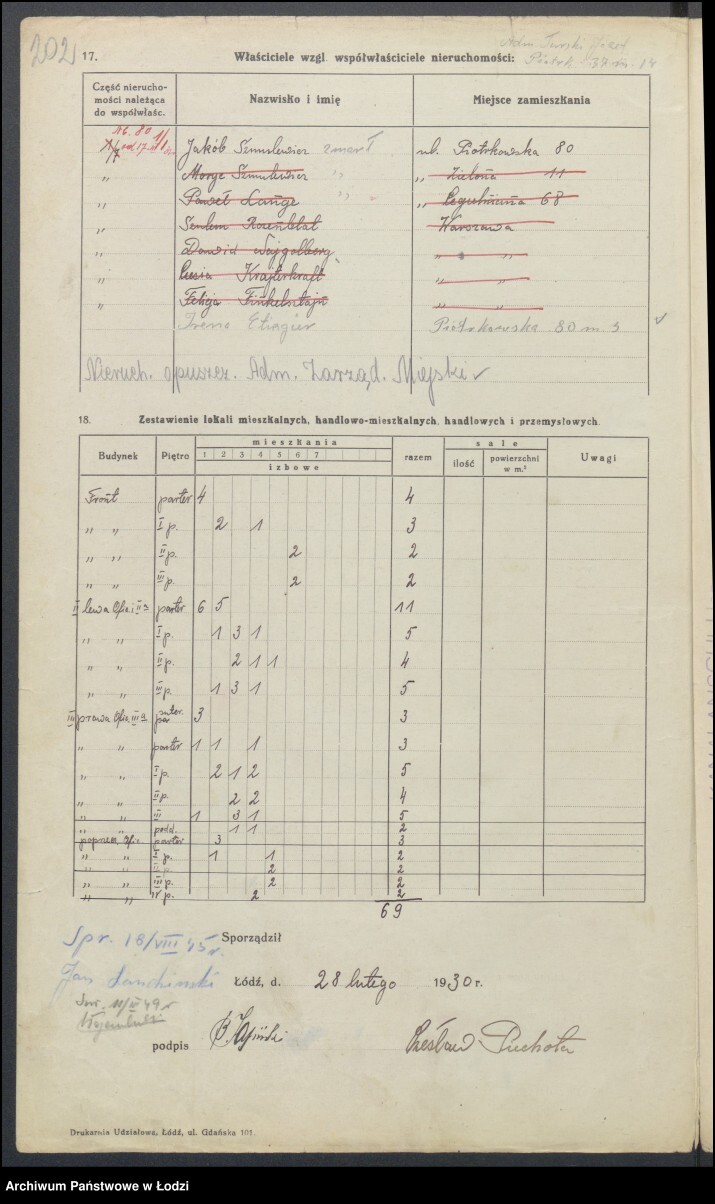 202
17. Właściciele wzgl. współwłaściciele nieruchomości:
Adm. Turski Józef
Piotrk. 37 m. 14
Część nierucho-
mości należąca
do współwłaśc.
Nazwisko i imię
Miejsce zamieszkania
1/7 Jakób Szmulewicz zmarł ul. Piotrkowska 80
„ Moryc Szmulewicz „ „ Zielona 11
„ Paweł Lange „ „ 68
„ Rozenblat Warszawa
„ Dawid „ „
„ „ „
„ Felicja Finkelsztajn „ „
Irena Piotrkowska 80 m 3
Nieruch. opuszcz. Adm. Zarząd. Miejski
18. Zestawienie lokali mieszkalnych, handlowo-mieszkalnych, handlowych i przemysłowych.
Budynek Piętro mieszkania razem sale Uwagi
1 2 3 4 5 6 7 ilość powierzchni w m.²
izbowe
Front parter 4 4
„ „ I p. 2 1 3
„ „ II p. 2 2
„ „ III p. 2 2
II lewa Ofic. i II a parter 6 5 11
„ „ I p. 1 3 1 5
„ „ II p. 2 1 1 4
„ „ III p. 1 3 1 5
III prawa Ofic. III a suter. 3 3
„ „ parter 1 1 1 3
„ „ I p. 2 1 2 5
„ „ II p. 2 2 4
„ „ III 1 3 1 5
„ „ podd. 1 1 2
poprzecz. Ofic. parter 3 3
„ „ I p. 1 1 2
„ „ II p. 2 2
„ „ III p. 2 2
„ „ IV p. 2 2
69
Spr. 18/VIII 45 r.
Sporządził
Jan
Łódź, d. 28 lutego 1930 r.
podpis
Czesław Puchota
Drukarnia Udziałowa, Łódź, ul. Gdańska 101.
Archiwum Państwowe w Łodzi